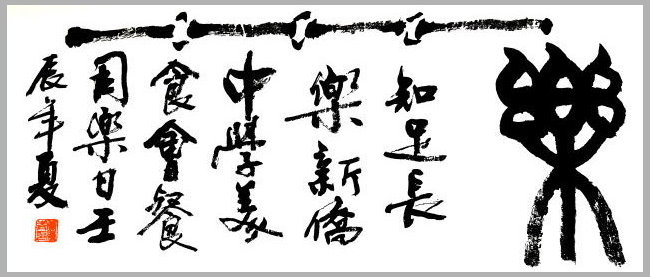 樂
知足長
樂新僑
中學美
食會餐
同樂日壬
辰年夏